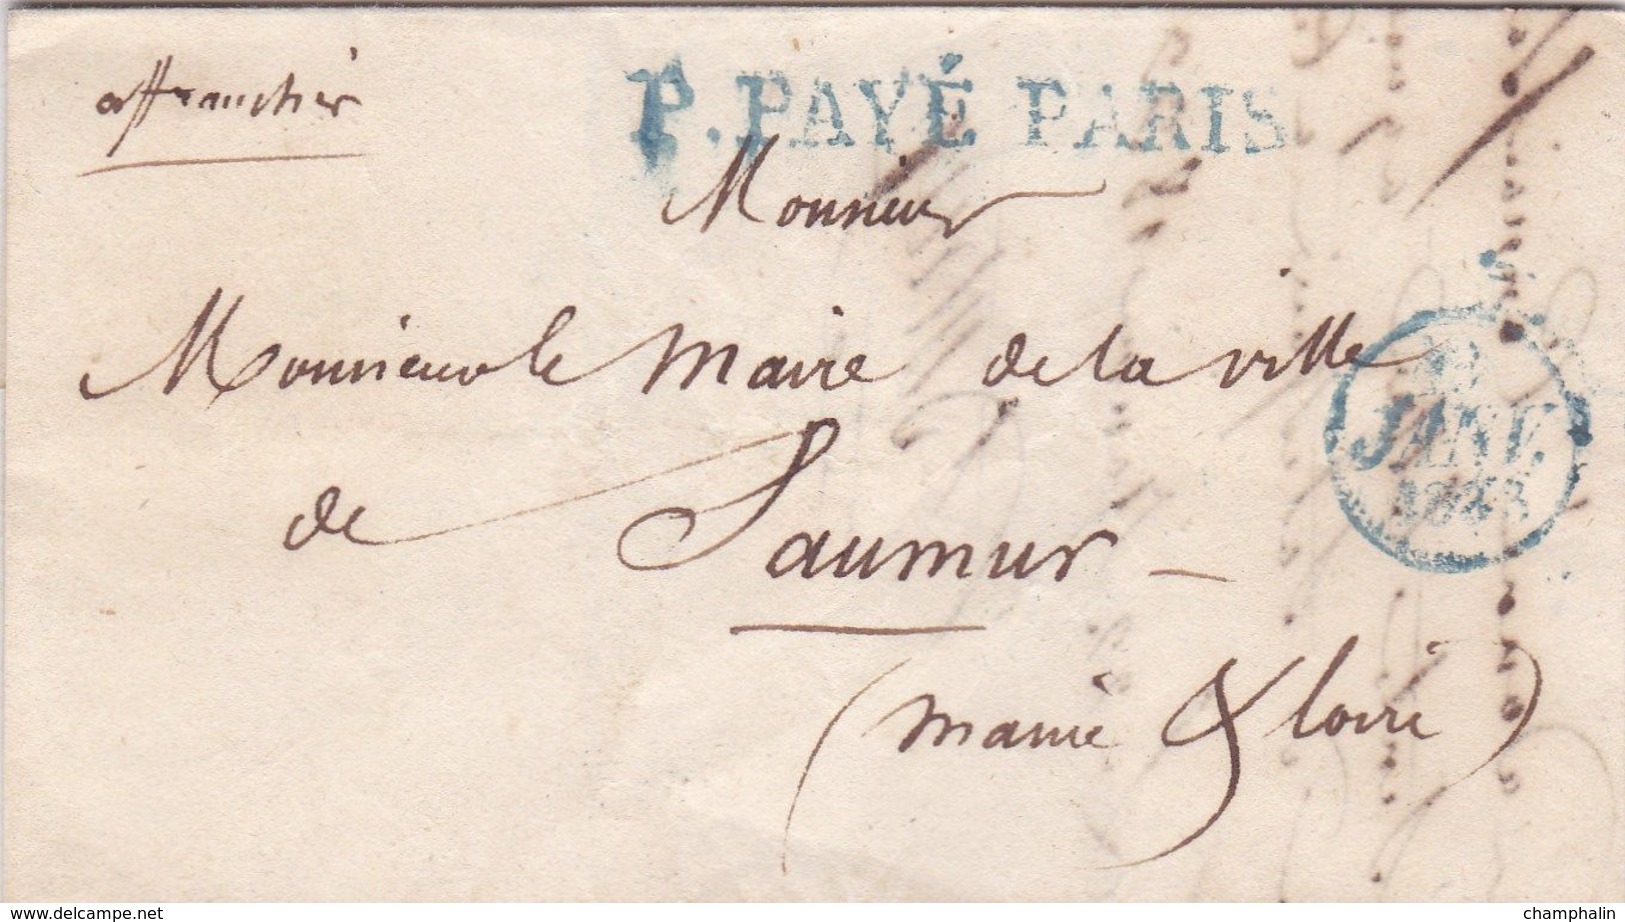 affranchie
P. PAYÉ PARIS
Monsieur
Monsieur le Maire de la ville
de Saumur
(Maine & Loire)
JANV.
www.delcampe.net
champhalin